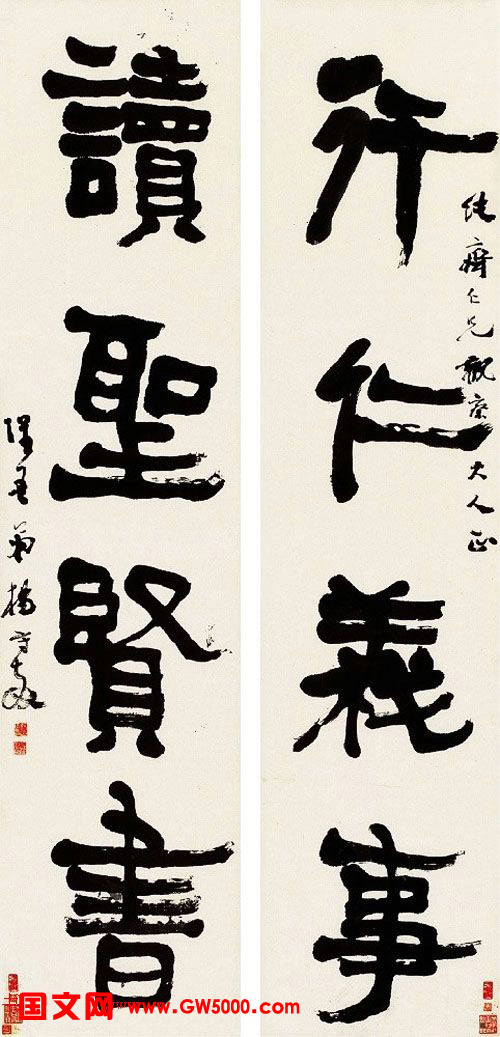 行仁義事
仁兄觀察大人正
讀聖賢書
弟楊守敬
国文网 www.GW5000.com